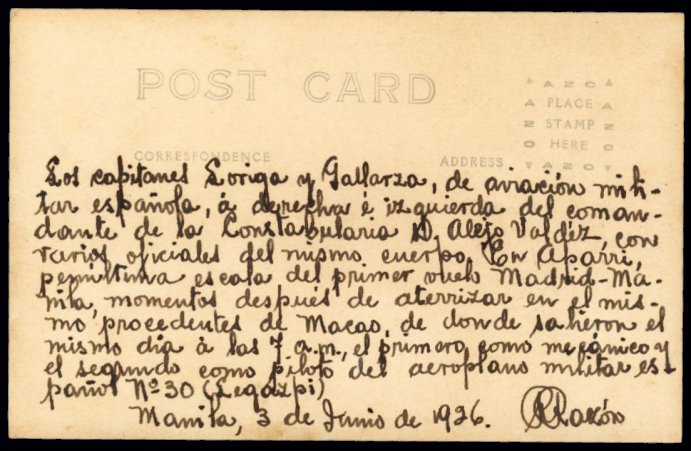 POST CARD
AZO
PLACE
STAMP
HERE
AZO
CORRESPONDENCE
ADDRESS
Los capitanes Loriga y Gallarza, de aviación mili-
tar española, á derecha é izquierda del coman-
dante de la Constabularia D. Alejo Valdéz, con
varios oficiales del mismo cuerpo. En Aparri,
penúltima escala del primer vuelo Madrid-Ma-
nila, momentos después de aterrizar en el mis-
mo, procedentes de Macao, de donde salieron el
mismo dia á las 7 a.m., el primero como mecánico y
el segundo como piloto del aeroplano militar es-
pañol Nº 30 (Legazpi)
Manila, 3 de Junio de 1926.